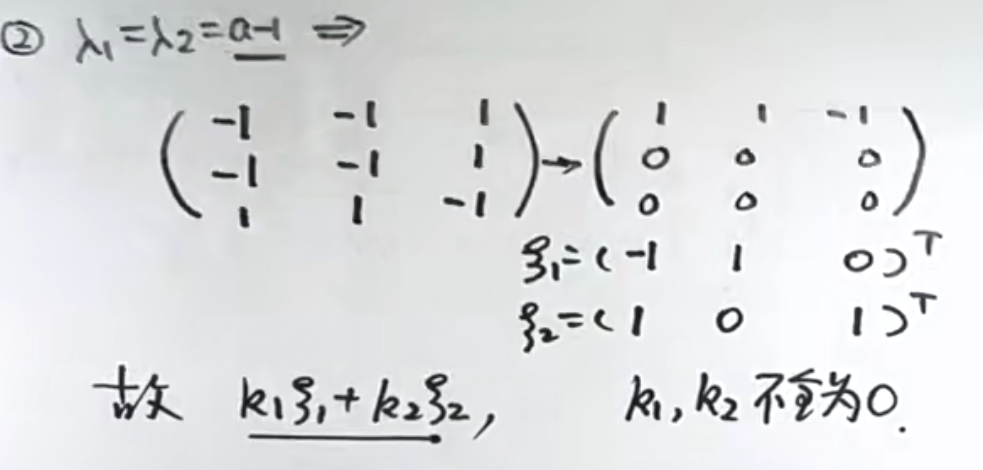 ② λ₁=λ₂=a-1 ⇒
( -1 -1 1 ) → ( 1 1 -1 )
( -1 -1 1 ) ( 0 0 0 )
( 1 1 -1 ) ( 0 0 0 )
ξ₁=( -1 1 0 )ᵀ
ξ₂=( 1 0 1 )ᵀ
故 k₁ξ₁+k₂ξ₂, k₁,k₂不全为0.